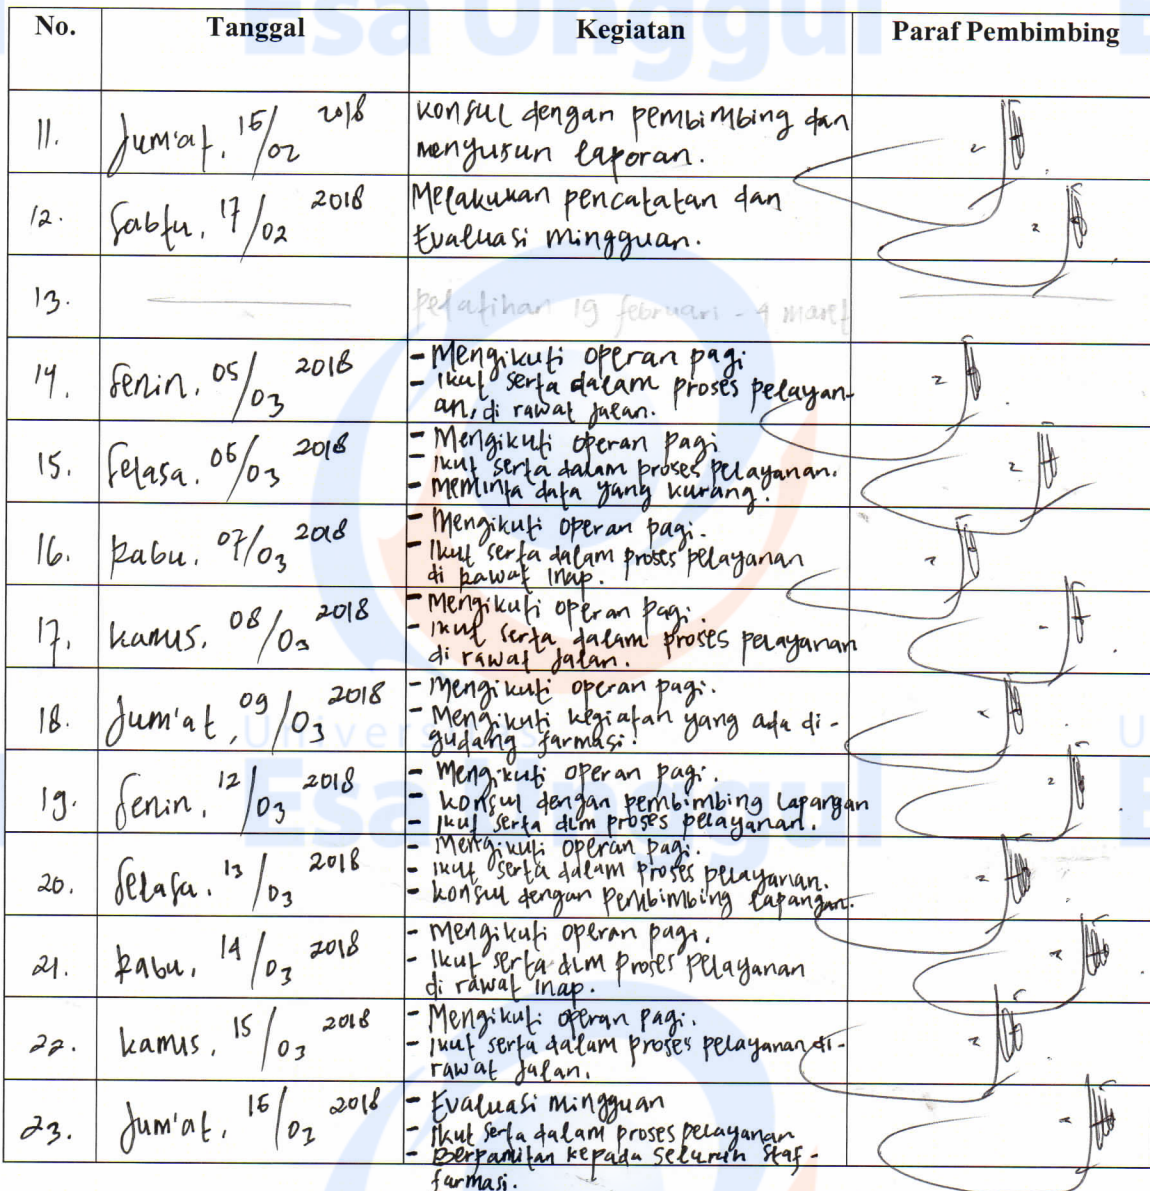 No. Tanggal Kegiatan Paraf Pembimbing
11. Jum'at, 16/02 2018 Konsul dengan pembimbing dan
menyusun laporan.
12. Sabtu, 17/02 2018 Melakukan pencatatan dan
Evaluasi mingguan.
13. pelatihan 19 februari - 4 maret
14. Senin, 05/03 2018 - Mengikuti operan pagi
- Ikut serta dalam proses pelayan-
an, di rawat jalan.
15. Selasa, 06/03 2018 - Mengikuti operan pagi
- Ikut serta dalam proses pelayanan.
- Meminta data yang kurang.
16. Rabu, 07/03 2018 - Mengikuti operan pagi.
- Ikut serta dalam proses pelayanan
di Rawat Inap.
17. Kamis, 08/03 2018 - Mengikuti operan pagi.
- Ikut serta dalam proses pelayanan
di rawat jalan.
18. Jum'at, 09/03 2018 - Mengikuti operan pagi.
- Mengikuti kegiatan yang ada di-
gudang farmasi.
19. Senin, 12/03 2018 - Mengikuti operan pagi.
- Konsul dengan pembimbing Lapangan
- Ikut serta dlm proses pelayanan.
20. Selasa, 13/03 2018 - Mengikuti operan pagi.
- Ikut serta dalam proses pelayanan.
- Konsul dengan Pembimbing Lapangan.
21. Rabu, 14/03 2018 - Mengikuti operan pagi.
- Ikut serta dlm proses pelayanan
di rawat inap.
22. Kamis, 15/03 2018 - Mengikuti operan pagi.
- Ikut serta dalam proses pelayanan di-
rawat jalan.
23. Jum'at, 16/03 2018 - Evaluasi mingguan
- Ikut serta dalam proses pelayanan
- Berpamitan kepada seluruh staf-
farmasi.
Esa Unggul
Universitas
Esa Unggul